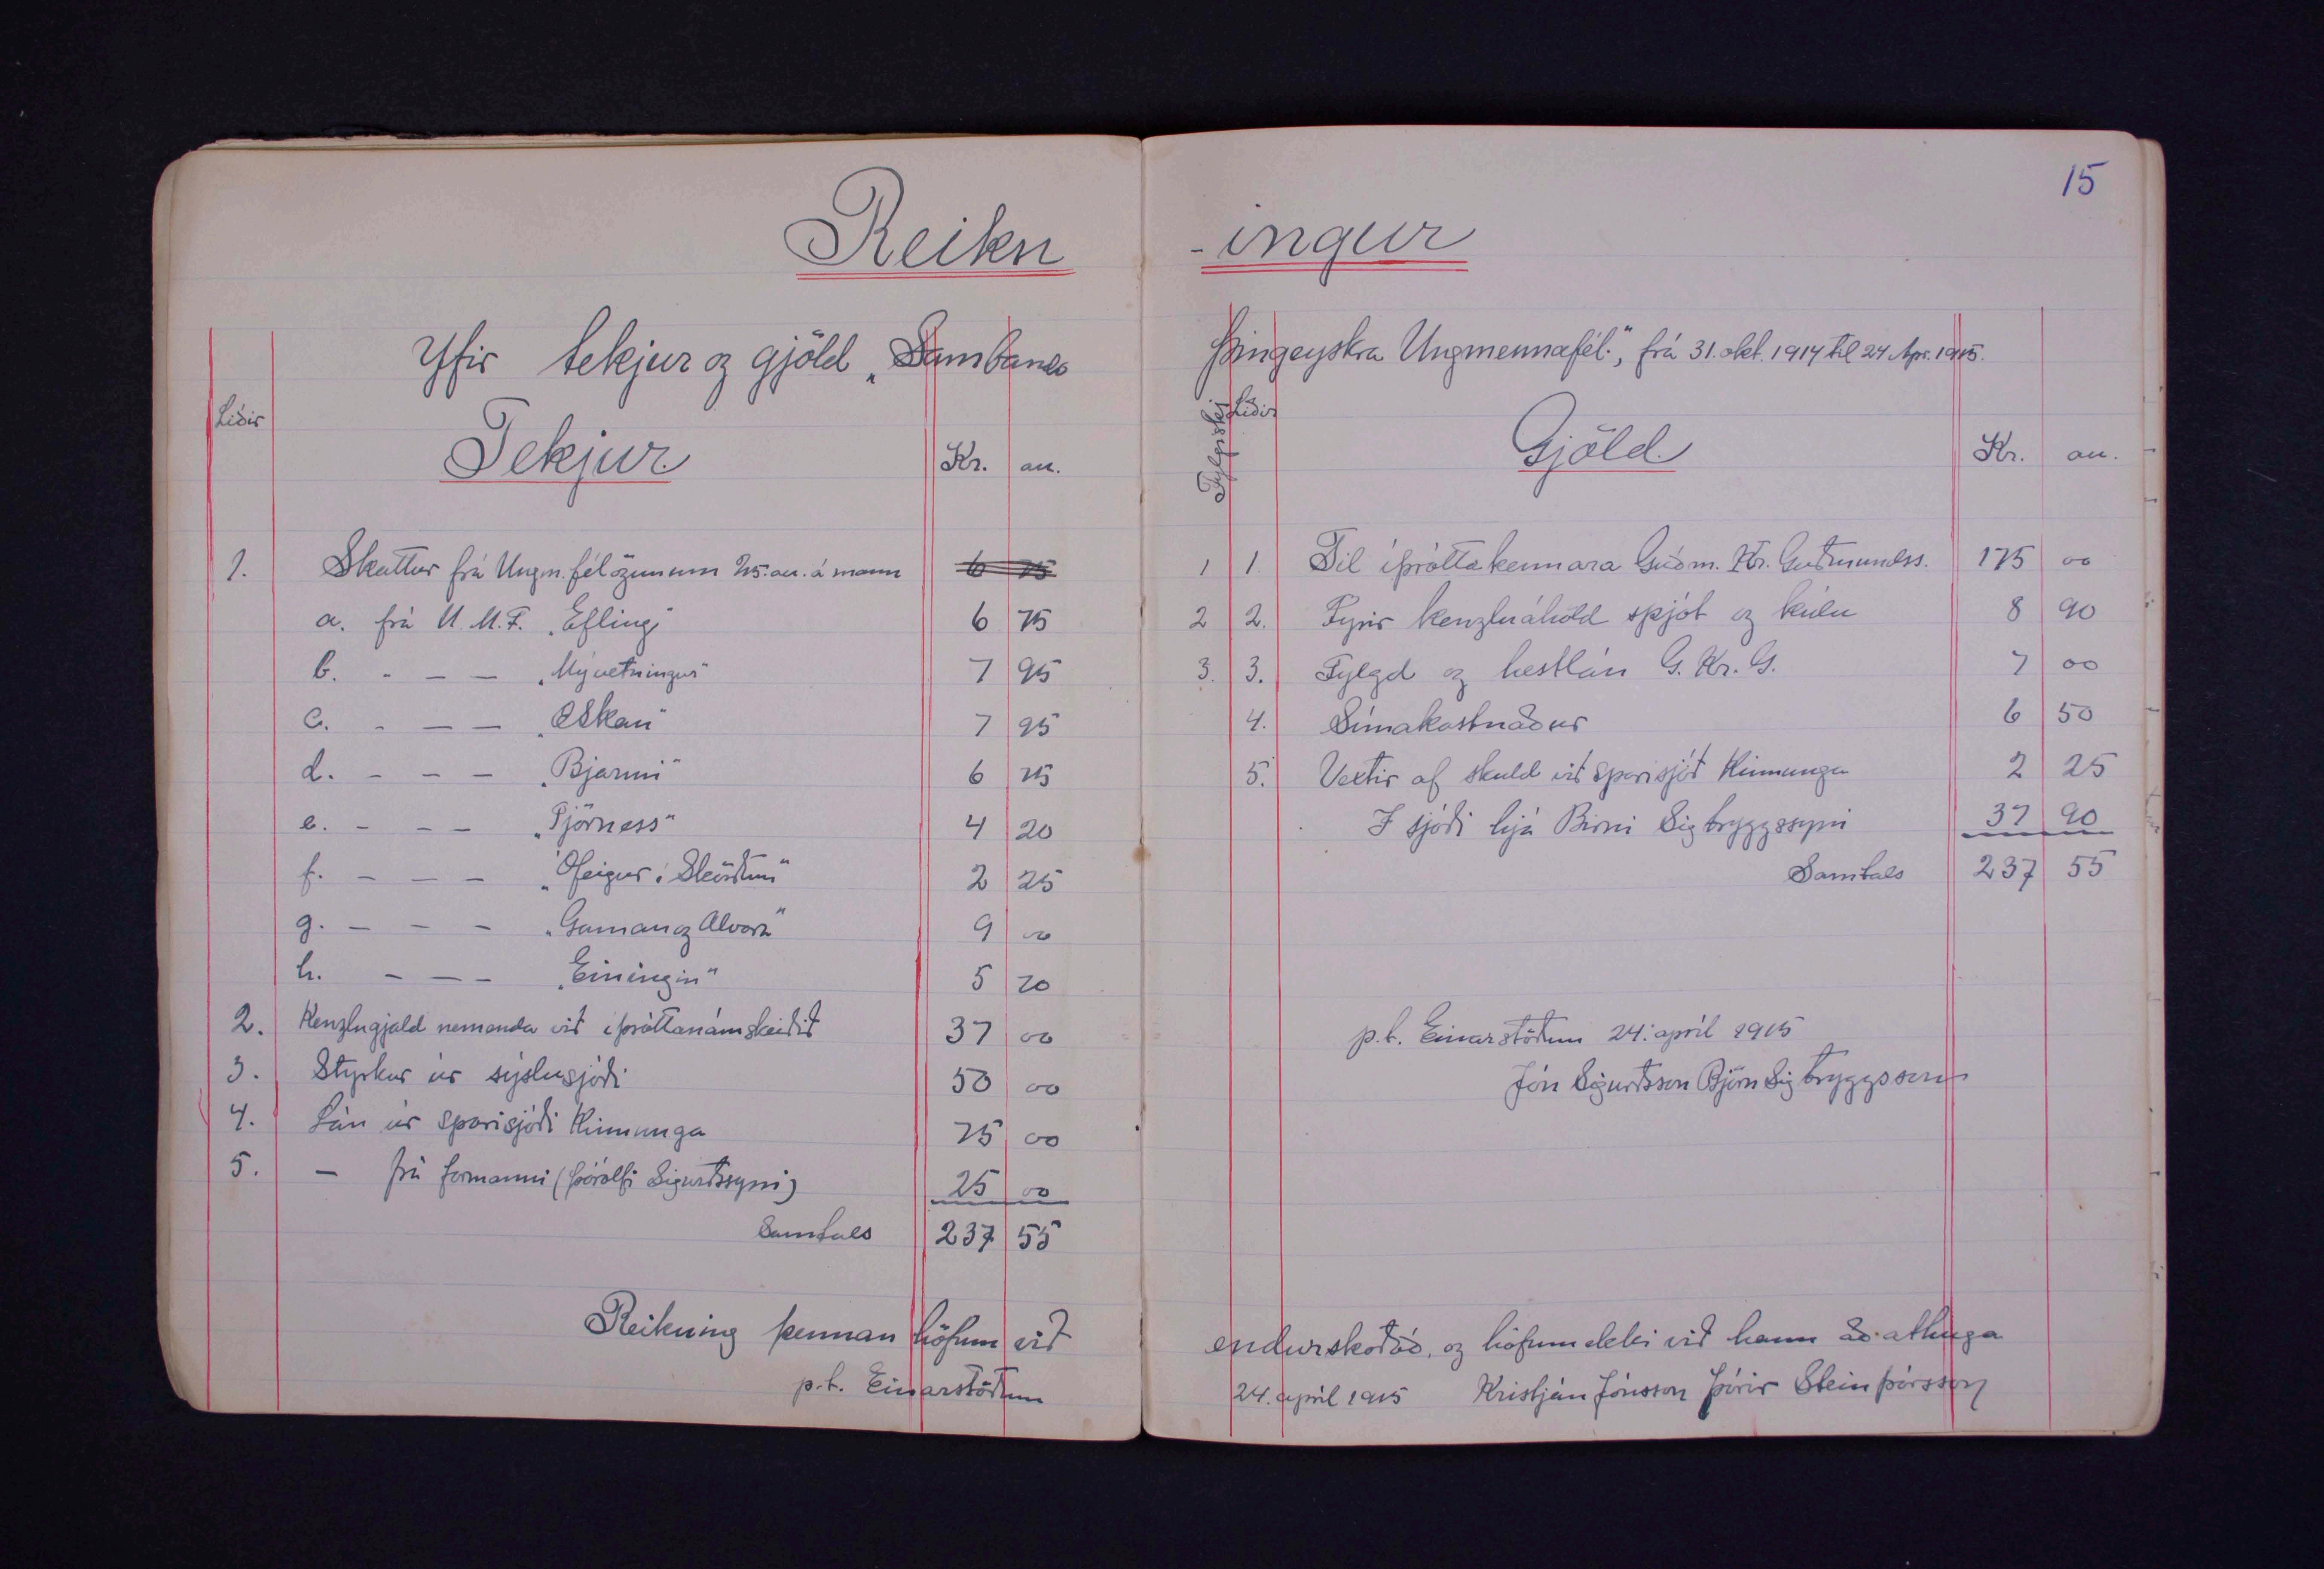 15
Reikn-ingur
Yfir tekjur og gjöld „Sambands Þingeyskra Ungmennafél.", frá 31. okt. 1914 til 24 Apr. 1915.
Liðir
Tekjur Kr. au.
1. Skattur frá Ungm.félögunum 75. au. á mann 6 75
a. frá U.M.F. „Efling" 6 75
b. - - - „Mývetningur" 7 95
c. - - - „Æskan" 7 95
d. - - - „Bjarmi" 6 75
e. - - - „Tjörness" 4 20
f. - - - „Ófeigur í Skörðum" 2 25
g. - - - „Gaman og Alvara" 9 00
h. - - - „Einingin" 5 70
2. Kenzlugjald nemenda við íþróttanámskeiðið 37 00
3. Styrkur úr sýslusjóði 50 00
4. Lán úr sparisjóði Kinnunga 75 00
5. — frá formanni (Þórólfi Sigurðssyni) 25 00
Samtals 237 55
Fylgiskjöl Liðir
Gjöld Kr. au.
1 1. Til íþróttakennara Guðm. Kr. Guðmundss. 175 00
2 2. Fyrir kenzluáhöld spjót og kúlu 8 90
3. 3. Fylgd og hestlán G. Kr. G. 7 00
4. Símakostnaður 6 50
5. Vextir af skuld við sparisjóð Kinnunga 2 25
Í sjóði hjá Birni Sigtryggssyni 37 90
Samtals 237 55
p.t. Einarstöðum 24. apríl 1915
Jón Sigurðsson Björn Sigtryggsson
Reikning þennan höfum við endurskoðað, og höfum ekki við hann að athuga
p.t. Einarstöðum 24. apríl 1915 Kristján Jónsson Þórir Steinþórsson